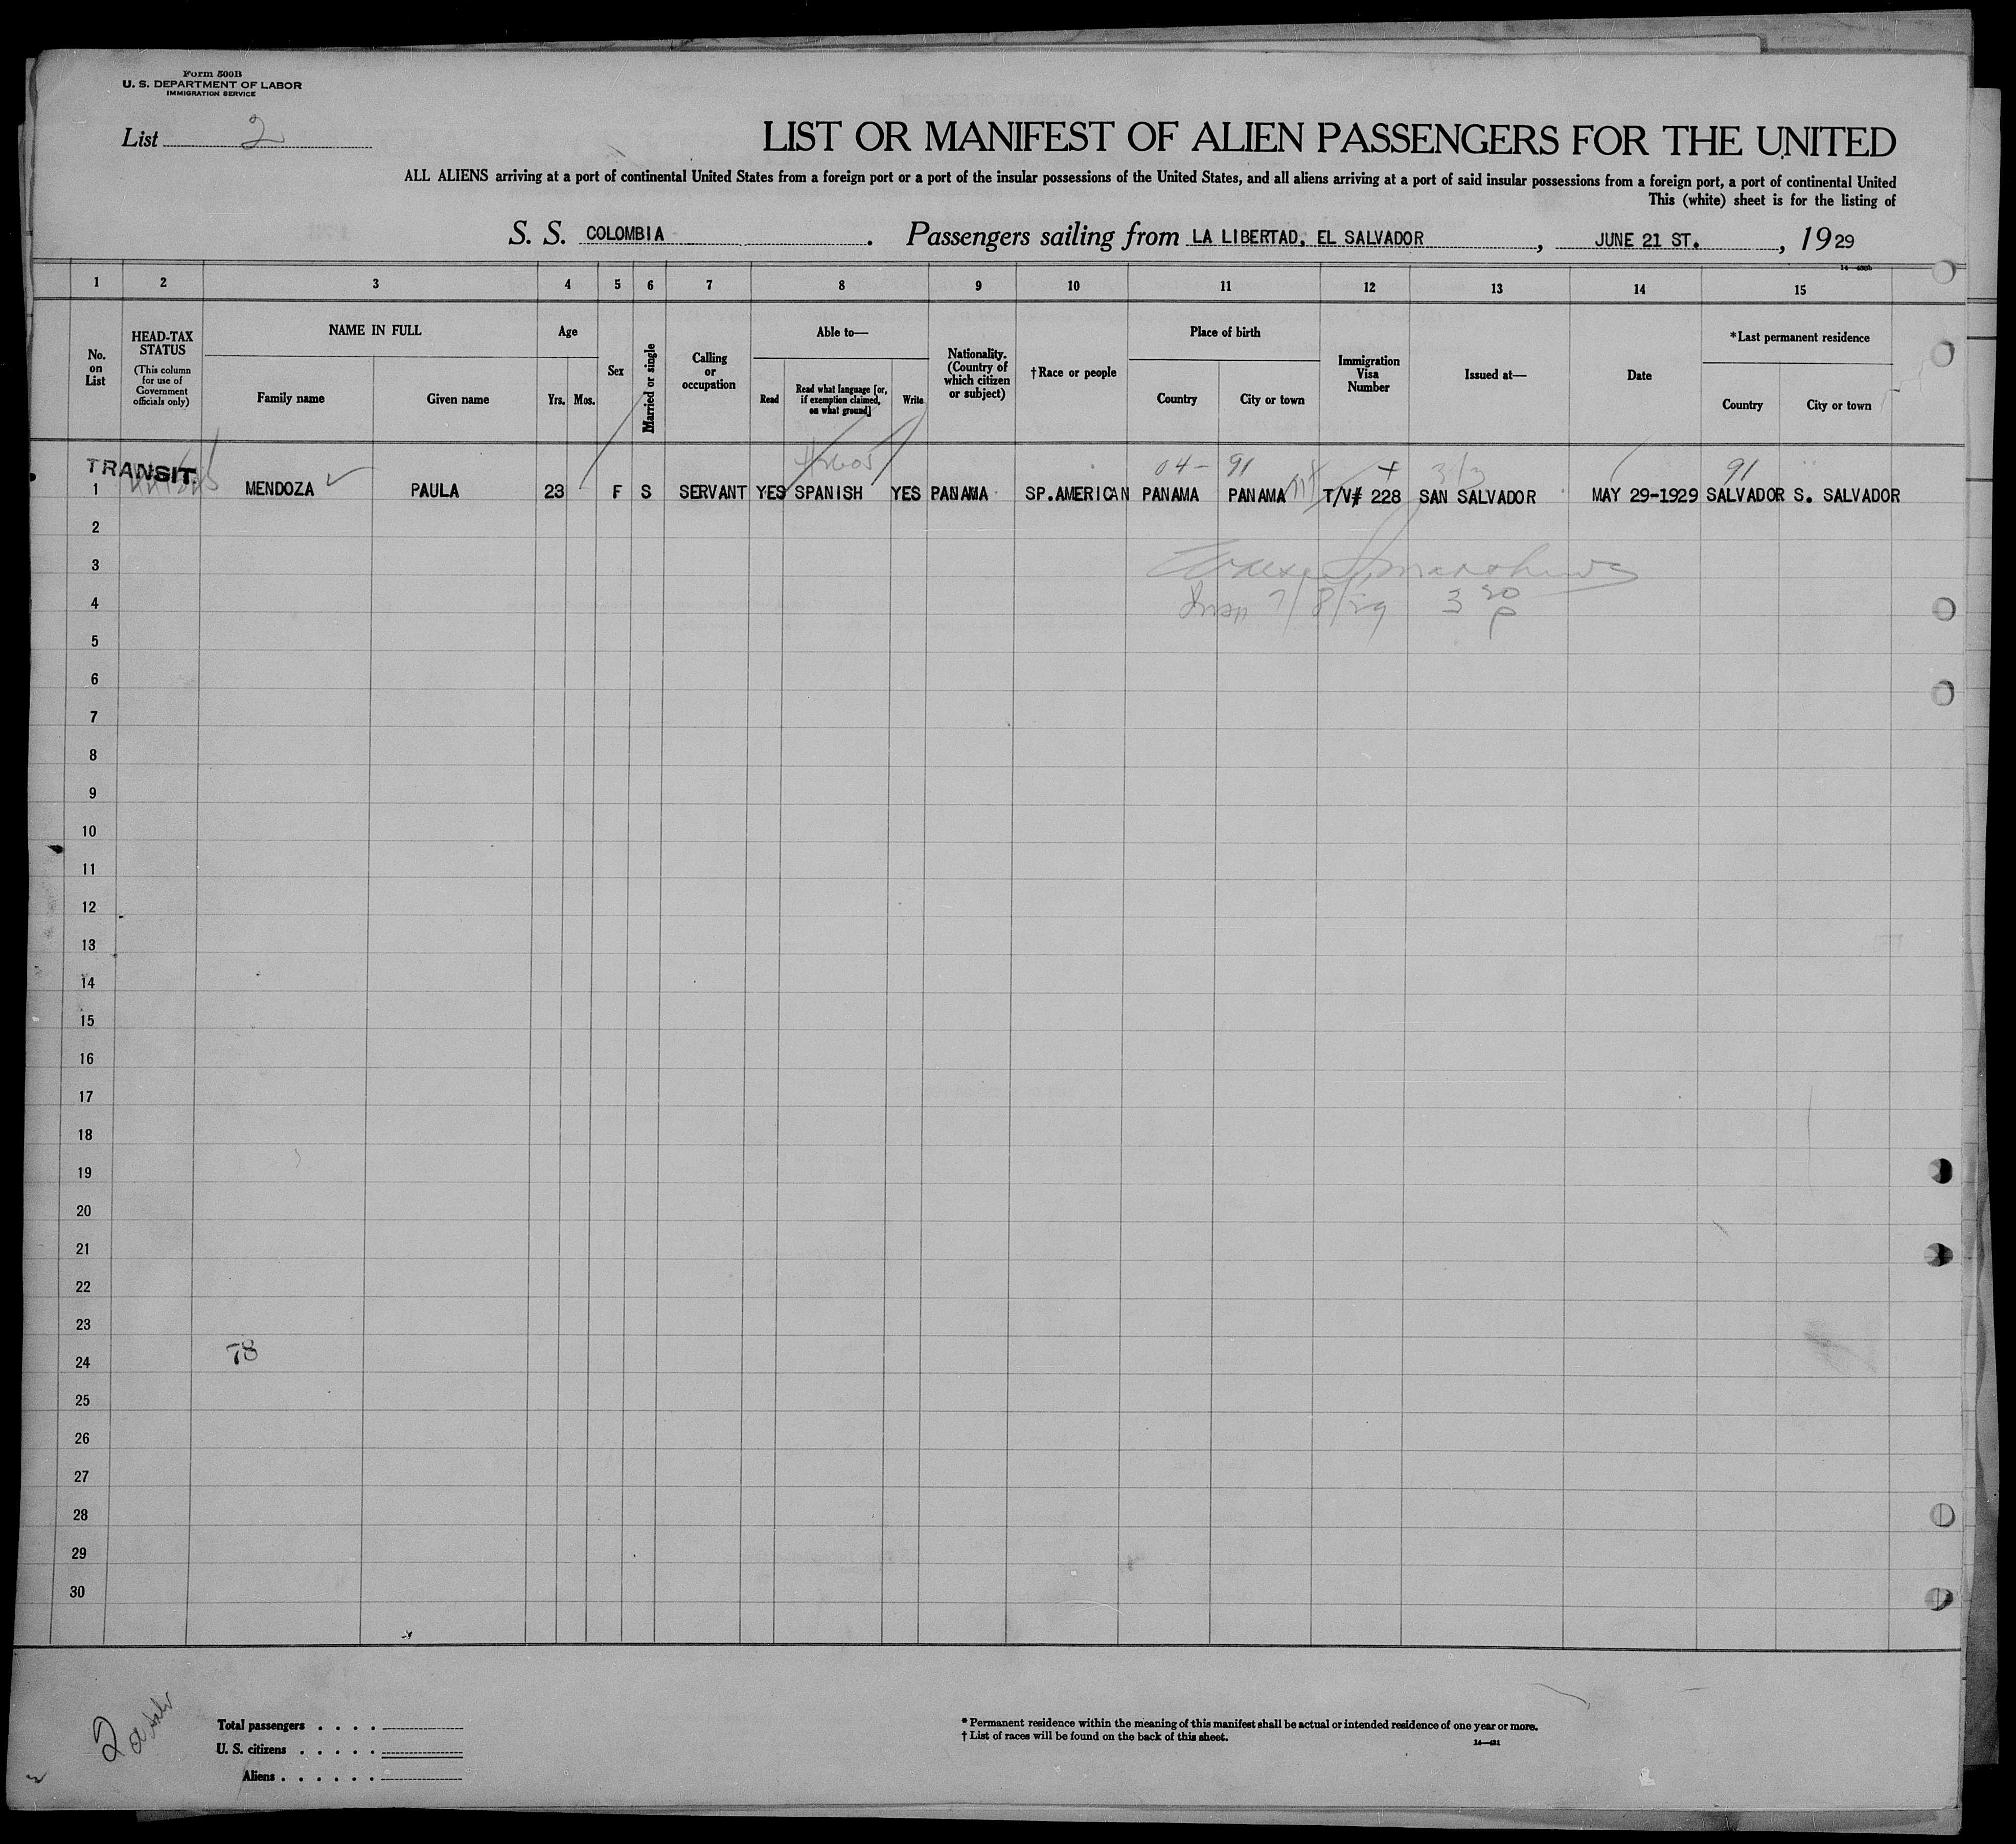 Form 500B
U. S. DEPARTMENT OF LABOR
IMMIGRATION SERVICE
List 2
LIST OR MANIFEST OF ALIEN PASSENGERS FOR THE UNITED
ALL ALIENS arriving at a port of continental United States from a foreign port or a port of the insular possessions of the United States, and all aliens arriving at a port of said insular possessions from a foreign port, a port of continental United
This (white) sheet is for the listing of
S. S. COLOMBIA. Passengers sailing from LA LIBERTAD, EL SALVADOR, JUNE 21 ST., 1929
1 2 3 4 5 6 7 8 9 10 11 12 13 14 15
No. on List
HEAD-TAX STATUS
(This column for use of Government officials only)
NAME IN FULL
Family name
Given name
Age
Yrs. Mos.
Sex
Married or single
Calling or occupation
Able to—
Read
Read what language [or, if exemption claimed, on what ground]
Write
Nationality. (Country of which citizen or subject)
†Race or people
Place of birth
Country
City or town
Immigration Visa Number
Issued at—
Date
*Last permanent residence
Country
City or town
TRANSIT.
04- 91 91
1 MENDOZA PAULA 23 F S SERVANT YES SPANISH YES PANAMA SP.AMERICAN PANAMA PANAMA T/V# 228 SAN SALVADOR MAY 29-1929 SALVADOR S. SALVADOR
2
3
4 7/8/29 3 20 P
5
6
7
8
9
10
11
12
13
14
15
16
17
18
19
20
21
22
23
24 78
25
26
27
28
29
30
2
Total passengers . . . .
U. S. citizens . . . . .
Aliens . . . . . .
* Permanent residence within the meaning of this manifest shall be actual or intended residence of one year or more.
† List of races will be found on the back of this sheet.
14—421